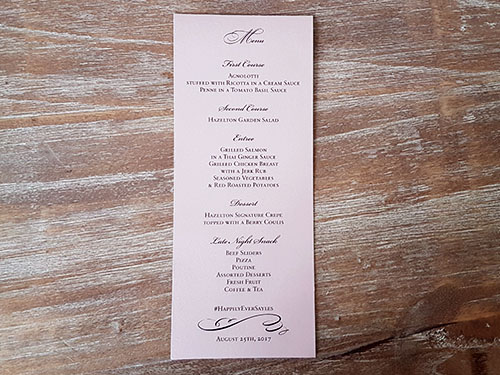 Menu
First Course
Agnolotti
stuffed with Ricotta in a Cream Sauce
Penne in a Tomato Basil Sauce
Second Course
Hazelton Garden Salad
Entree
Grilled Salmon
in a Thai Ginger Sauce
Grilled Chicken Breast
with a Jerk Rub
Seasoned Vegetables
& Red Roasted Potatoes
Dessert
Hazelton Signature Crepe
topped with a Berry Coulis
Late Night Snack
Beef Sliders
Pizza
Poutine
Assorted Desserts
Fresh Fruit
Coffee & Tea
#HappilyEverSayles
August 25th, 2017